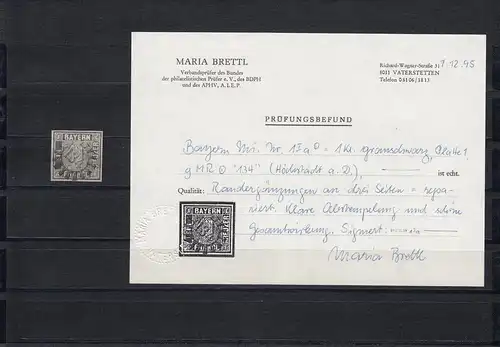 MARIA BRETTL
Verbandsprüfer des Bundes
der philatelistischen Prüfer e. V., des BDPH
und des APHV, A. I. E. P.
Richard-Wagner-Straße 31
8011 VATERSTETTEN
Telefon 08106/1815
1.12.95
PRÜFUNGSBEFUND
Bayern Mi. Nr. 1 I a ⊙ = 1 Kr. grauschwarz, Platte 1
g MR ⊙ "134" (Höchstädt a. D.), ist echt.
Qualität: Randergänzungen an drei Seiten = repa-
riert. Klare Abstempelung und schöne
Gesamtwirkung. Signiert:
Maria Brettl
BAYERN
BAYERN